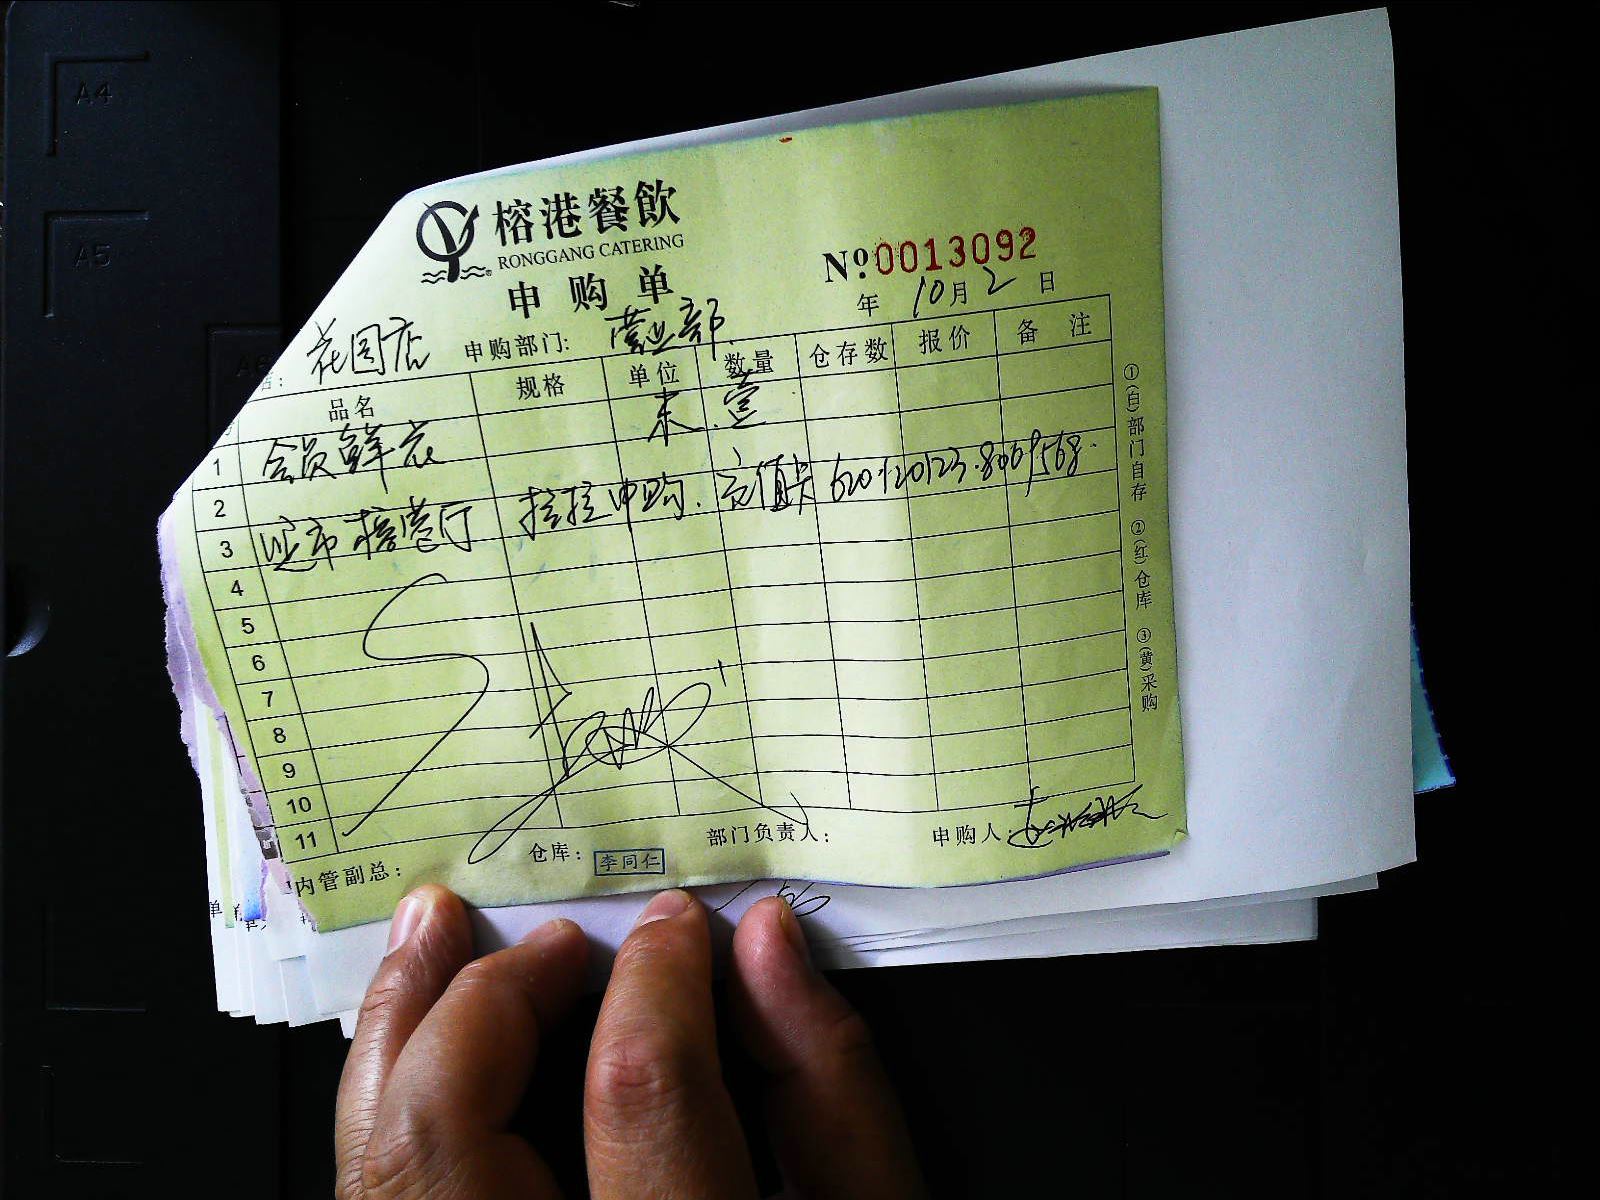 A4
A5
榕港餐飲
RONGGANG CATERING
申购单
Nº 0013092
年 10月 2 日
店: 花园店 申购部门: 营业部
品名 规格 单位 数量 仓存数 报价 备注
1 会员鲜花 束 壹
2
3 拉拉申购. 充值卡
4
5
6
7
8
9
10
11
①(白)部门自存 ②(红)仓库 ③(黄)采购
内管副总: 仓库: 李同仁 部门负责人: 申购人: